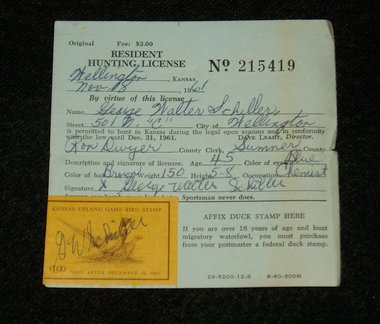 Original Fee: $3.00
RESIDENT
HUNTING LICENSE
Nº 215419
Wellington, Kansas,
Nov 18 1961
By virtue of this license
George Walter Schiller
Street 501 N. "C" City of Wellington
is permitted to hunt in Kansas during the legal open seasons and in conformity
with the law until Dec. 31, 1961. DAVE LEAHY, Director.
Ron Dwyer County Clerk, Sumner County
Description and signature of licensee. Age 45 Color of eyes Blue
Color of hair Brown 150 5-8 Occupation Chemist
X George Walter Schiller
Sportsman never does.
KANSAS UPLAND GAME BIRD STAMP
G W Schiller
$1.00
VOID AFTER DECEMBER 31, 1961
AFFIX DUCK STAMP HERE
If you are over 16 years of age and hunt
migratory waterfowl, you must purchase
from your postmaster a federal duck stamp.
26-5200-12-S 9-60-300M